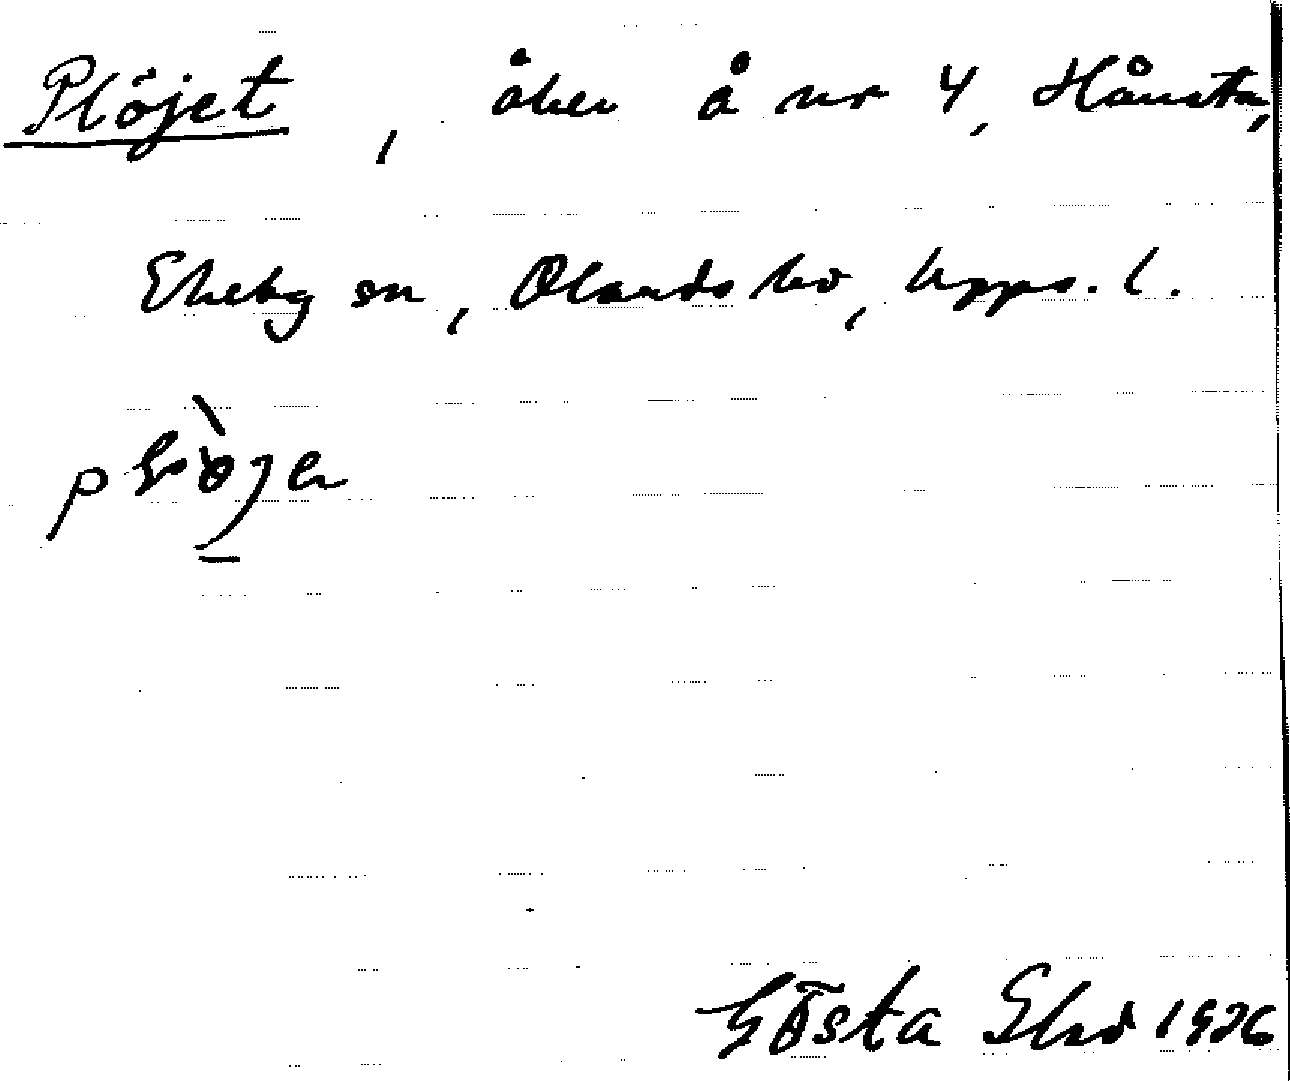 Plöjet, åker å nr 4, Hånsta,
Ekeby sn, Olands hd, Upps. l.
Gösta Ekö 1926